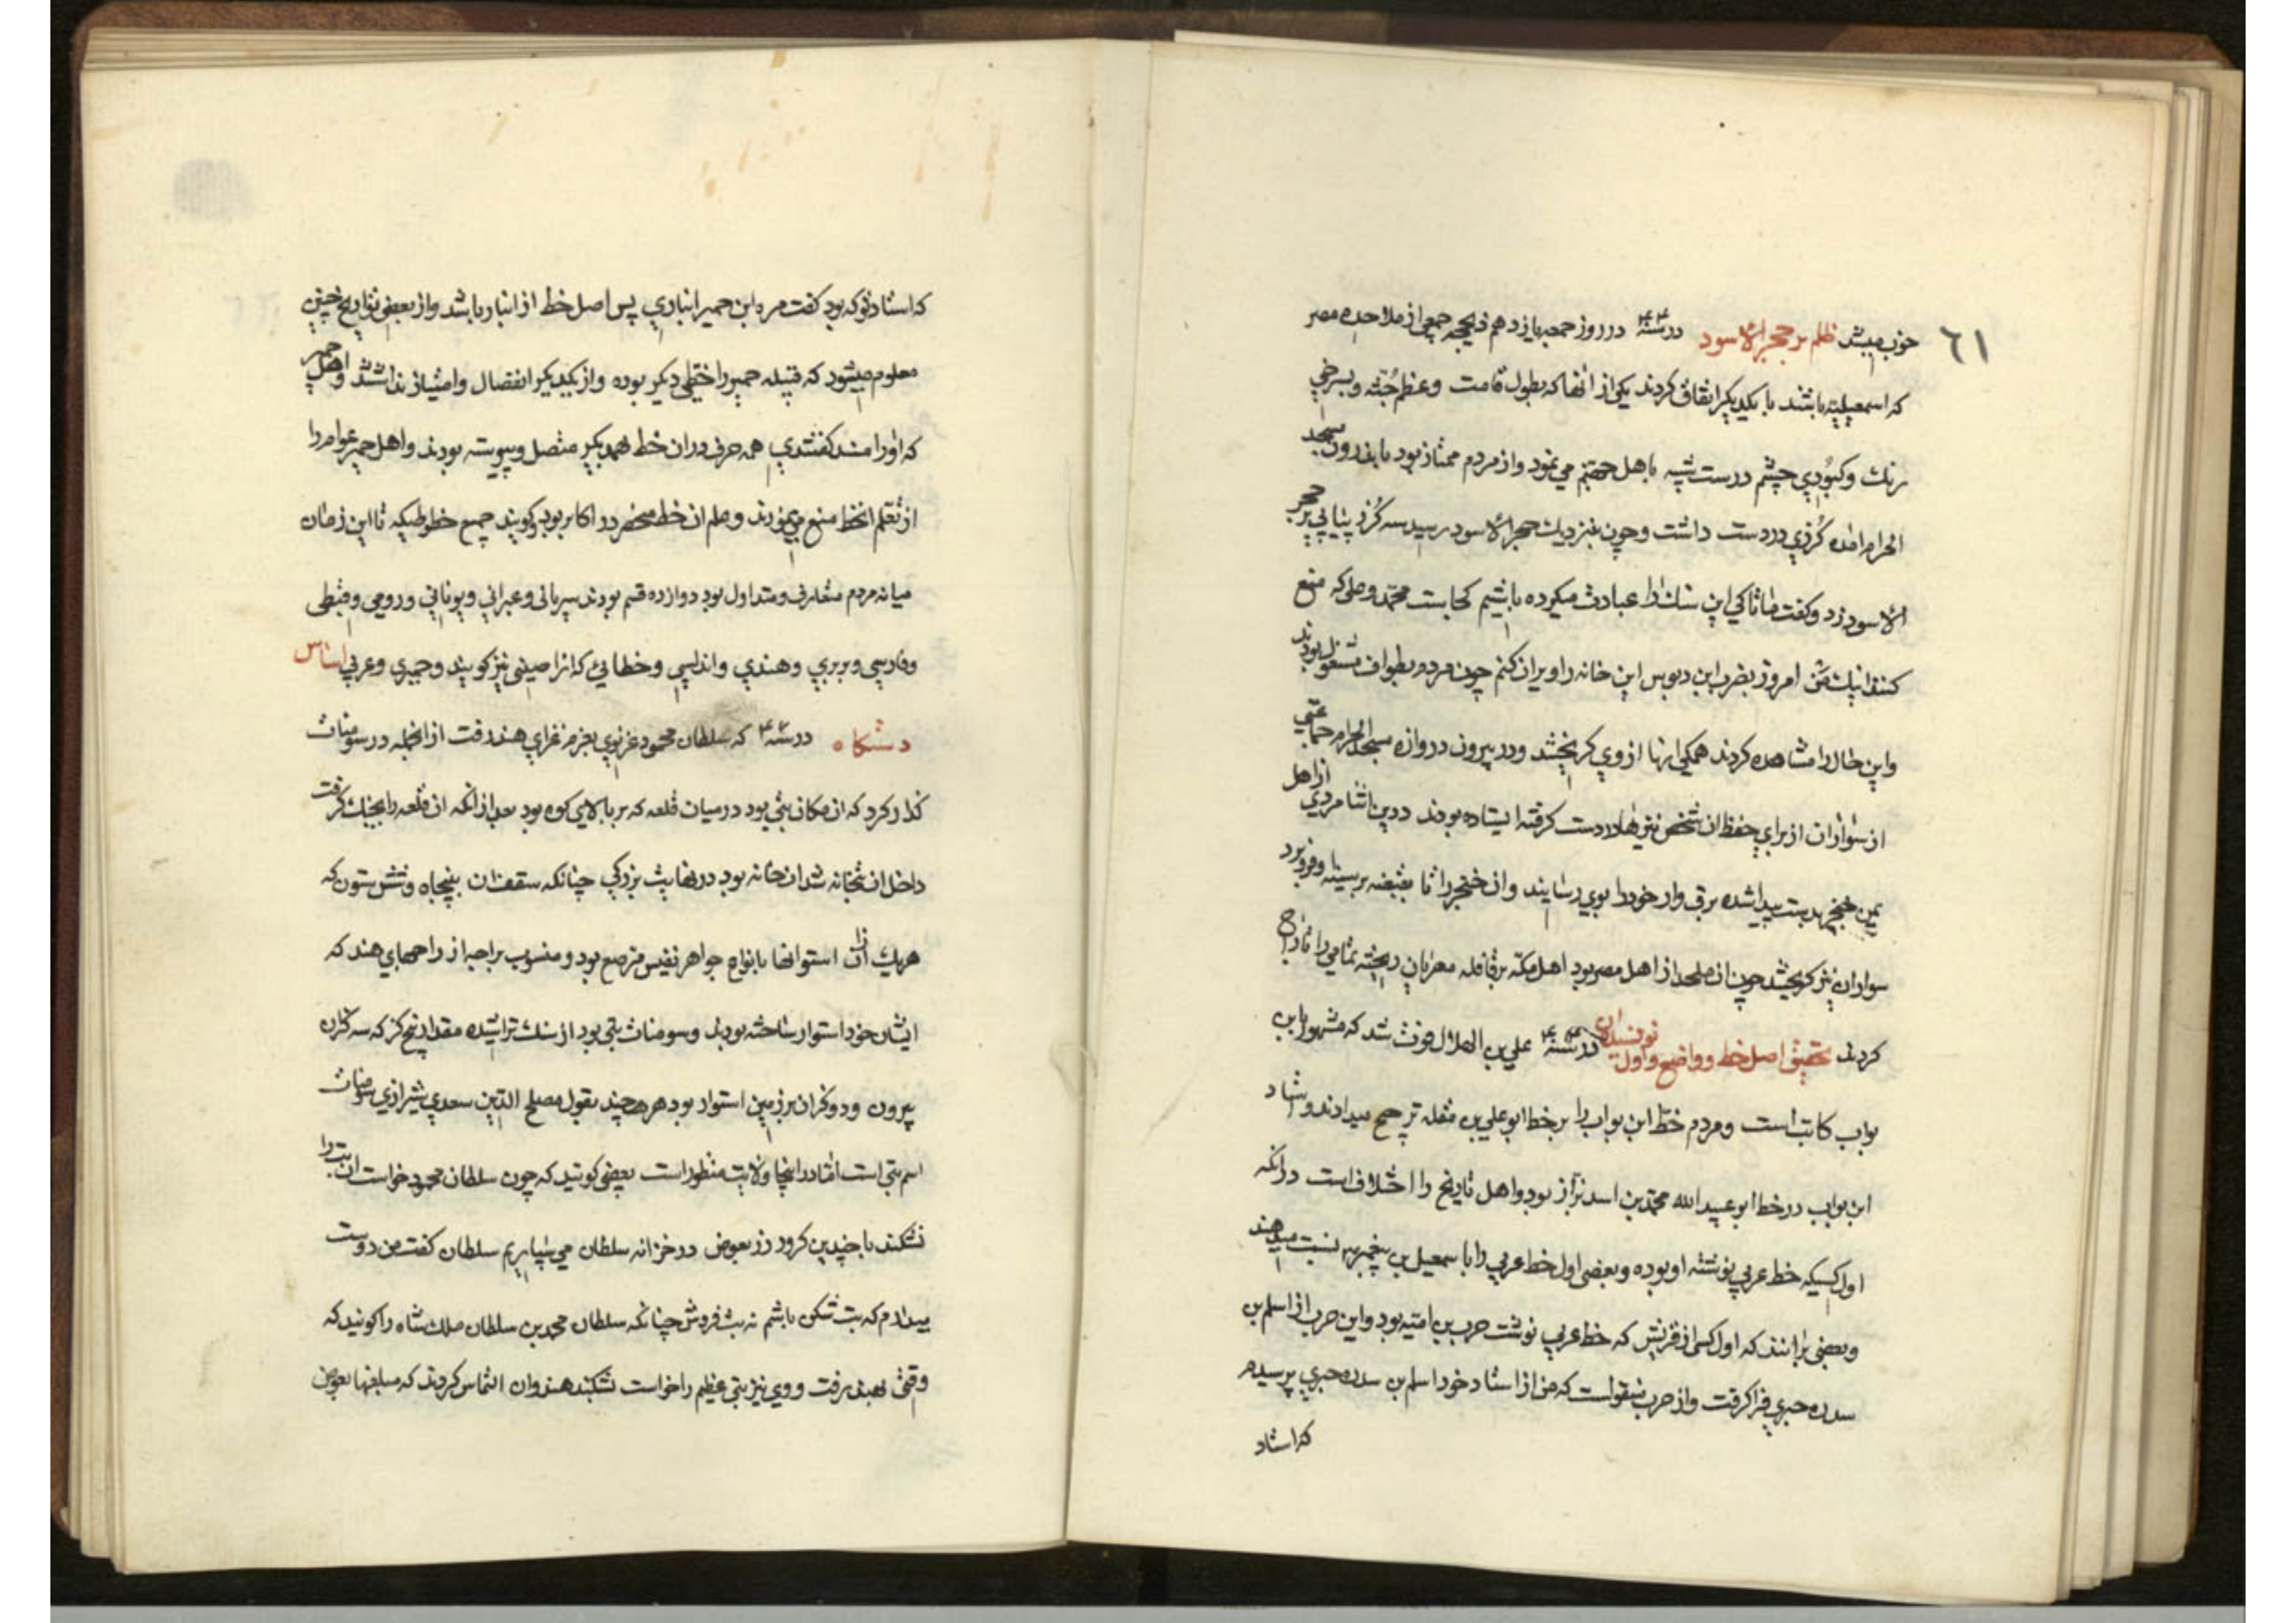 ٦١
خون میشد ظلم بر حجر الاسود در سنه در روز جمعه یازدهم ذیحجه جمعی از ملاحده مصر
که اسمعیلیه باشند با یکدیکر اتفاق کردند یکی از انها که بطول قامت و عظم جُثه و بسرخی
رنك و کبُودی چشم درست شبیه باهل جهنم می نمود و از مردم ممتاز بود باندرون مسجد
الحرام امده کُرزی در دست داشت و چون بنزدیك حجر الاسود رسید سه کُرز پیاپی بر حجر
الاسود زد و کفت تا کی این سنك را عبادت میکرده باشیم کجاست محمّد و علی که منع
کنند اینك من امروز بضرب این دبوس این خانه را ویران کنم چون مردم بطواف مشغول بودند
و این حال را مشاهده کردند همکی انها از وی کریختند و در بیرون دروازه مسجد الحرام جماعتی
از سواران از برای حفظ ان شخص نیزها در دست کرفته ایستاده بودند درین اثنا مردی از اهل
یمن خنجر بدست پیدا شده برق وار خود را بوی رسانید و ان خنجر را تا بقبضه بر سینه او فرو برد
سواران نیز کریختند چون ان ملحد از اهل مصر بود اهل مکّه بر قافله مصریان ریخته تمامی را تاراج
کردند تحقیق اصل خط و واضع و اول نویسندان در سنه علی بن الهلال فوت شد که مشهور بابن
بواب کاتب است و مردم خط ابن بواب را بر خط ابو علی بن مقله ترجیح میدادند و استاد
ابن بواب در خط ابو عبید الله محمّد بن اسد بزّاز بود و اهل تاریخ را اختلاف است در انکه
اول کسیکه خط عربی نوشته او بوده و بعضی اول خط عربی را باسمعیل بن پیغمبر نسبت میدهند
و بعضی برانند که اول کسی از قریش که خط عربی نوشت حرب بن امیّه بود و این حرب از اسلم بن
سدره حیری فرا کرفت و از حرب منقولست که من از استاد خود اسلم بن سدره حیری پرسیدم
که استاد
که استاد تو که بود کفت مره ابن حمیر انباری پس اصل خط از انبار باشد و از بعضی تواریخ چنین
معلوم میشود که قبیله حمیر را خطی دیکر بوده و از یکدیکر انفصال و امتیاز نداشتند و اهل حمیر
که او را مسند کفتندی همه حرف در ان خط بهمدیکر متصل و پیوسته بودند و اهل حمیر عوام را
از تعلم انخط منع می نمودند و علم ان خط منحصر در اکابر بود و کویند جمیع خطوطیکه تا این زمان
میانه مردم متعارف و متداول بود دوازده قسم بودند سریانی و عبرانی و یونانی و رومی و قبطی
و فارسی و بربری و هندی و اندلسی و خطائی که انرا صینی نیز کویند و حمیری و عربی اساس
دستکاه در سنه که سلطان محمود غزنوی بعزم غزای هند رفت از انجمله در سومنات
کذار کرد که ان مکان بتی بود در میان قلعه که بر بالای کوه بود بعد از انکه ان قلعه را بجنك کرفت
داخل ان بتخانه شد ان خانه بود در نهایت بزرکی چنانکه سقف ان بپنجاه و شش ستون که
هریك از ان استوانها بانواع جواهر نفیس مرصع بود و منسوب براجه از راجهای هند که
ایشان خود استوار ساخته بودند و سومنات بتی بود از سنك تراشیده مقدار پنج کز که سه کز ان
بیرون و دو کز ان بر زمین استوار بود هر چند بقول مصلح الدین سعدی شیرازی سومنات
اسم بتی است امّا در اینجا ولایت منظور است بعضی کویند که چون سلطان محمود خواست ان بت را
نشکند با چندین کرور زر بعوض در خزانه سلطان می سپاریم سلطان کفت من دوست
میدارم که بت شکن باشم نه بت فروش چنانکه سلطان محمد بن سلطان ملك شاه را کویند که
وقتی بهند رفت و وی نیز بتی عظیم را خواست بشکند هندوان التماس کردند که مبلغها بعوض